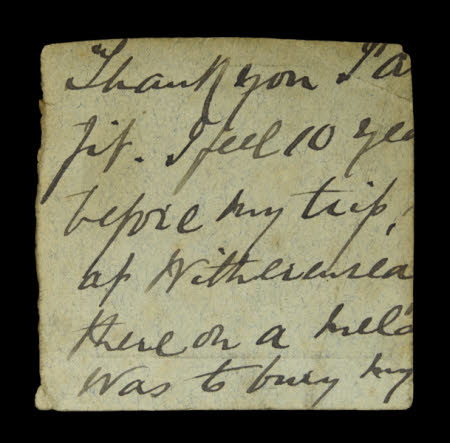 "Thank you I a
fit. I feel 10 yea
before my trip,
at Withernsea
there on a
was to bury my